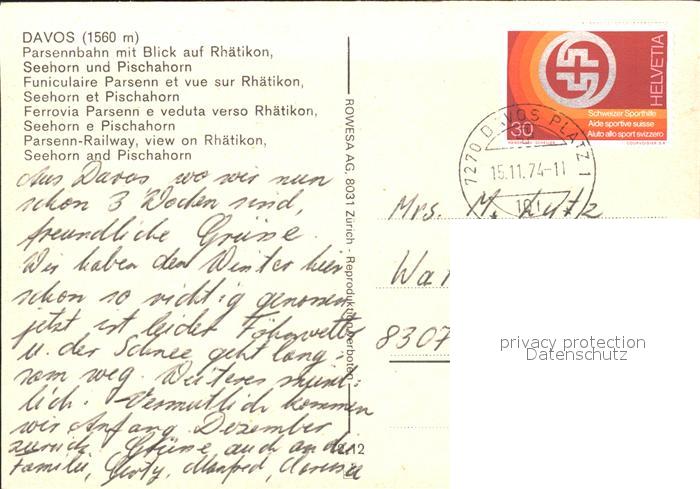 DAVOS (1560 m)
Parsennbahn mit Blick auf Rhätikon,
Seehorn und Pischahorn
Funiculaire Parsenn et vue sur Rhätikon,
Seehorn et Pischahorn
Ferrovia Parsenn e veduta verso Rhätikon,
Seehorn e Pischahorn
Parsenn-Railway, view on Rhätikon,
Seehorn and Pischahorn
Aus Davos, wo wir nun
schon 3 Wochen sind,
freundliche Grüsse.
Wir haben den Winter hier
schon so richtig genossen,
jetzt ist leider Föhnwetter
u. der Schnee geht lang-
sam weg. Weiteres münd-
lich. Vermutlich kommen
wir Anfang Dezember
zurück. Grüsse auch an die
Familie, Manfred,
ROWESA AG, 8031 Zürich - Reproduktion verboten
12
HELVETIA
Schweizer Sporthilfe
Aide sportive suisse
Aiuto allo sport svizzero
30
COURVOISIER S.A.
7270 DAVOS PLATZ 1
15.11.74-11
Mrs. M.
8307
privacy protection
Datenschutz